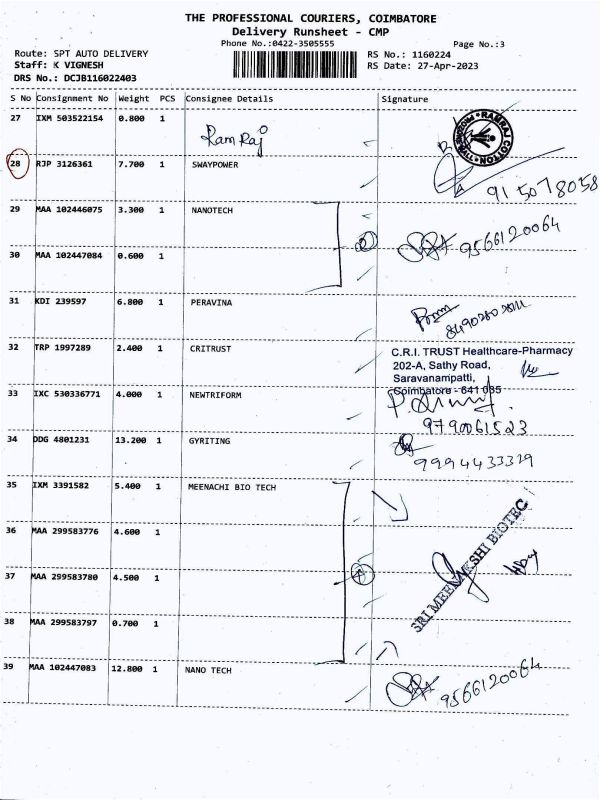 THE PROFESSIONAL COURIERS, COIMBATORE
Delivery Runsheet - CMP
Phone No.:0422-3505555 Page No.:3
Route: SPT AUTO DELIVERY RS No.: 1160224
Staff: K VIGNESH RS Date: 27-Apr-2023
DRS No.: DCJB116022403
S No Consignment No Weight PCS Consignee Details Signature
27 IXM 503522154 0.800 1 Ram Raj
RAMRAJ COTTON
28 RJP 3126361 7.700 1 SWAYPOWER
915078058
29 MAA 102446075 3.300 1 NANOTECH
9566120064
30 MAA 102447084 0.600 1
31 KDI 239597 6.800 1 PERAVINA
32 TRP 1997289 2.400 1 CRITRUST
C.R.I. TRUST Healthcare-Pharmacy
202-A, Sathy Road,
Saravanampatti,
Coimbatore - 641 035
33 IXC 530336771 4.000 1 NEWTRIFORM
9790061523
34 DDG 4801231 13.200 1 GYRITING
9994433329
35 IXM 3391582 5.400 1 MEENACHI BIO TECH
36 MAA 299583776 4.600 1
SRI MEENAKSHI BIOTEC
37 MAA 299583780 4.500 1
38 MAA 299583797 0.700 1
39 MAA 102447083 12.800 1 NANO TECH
9566120064